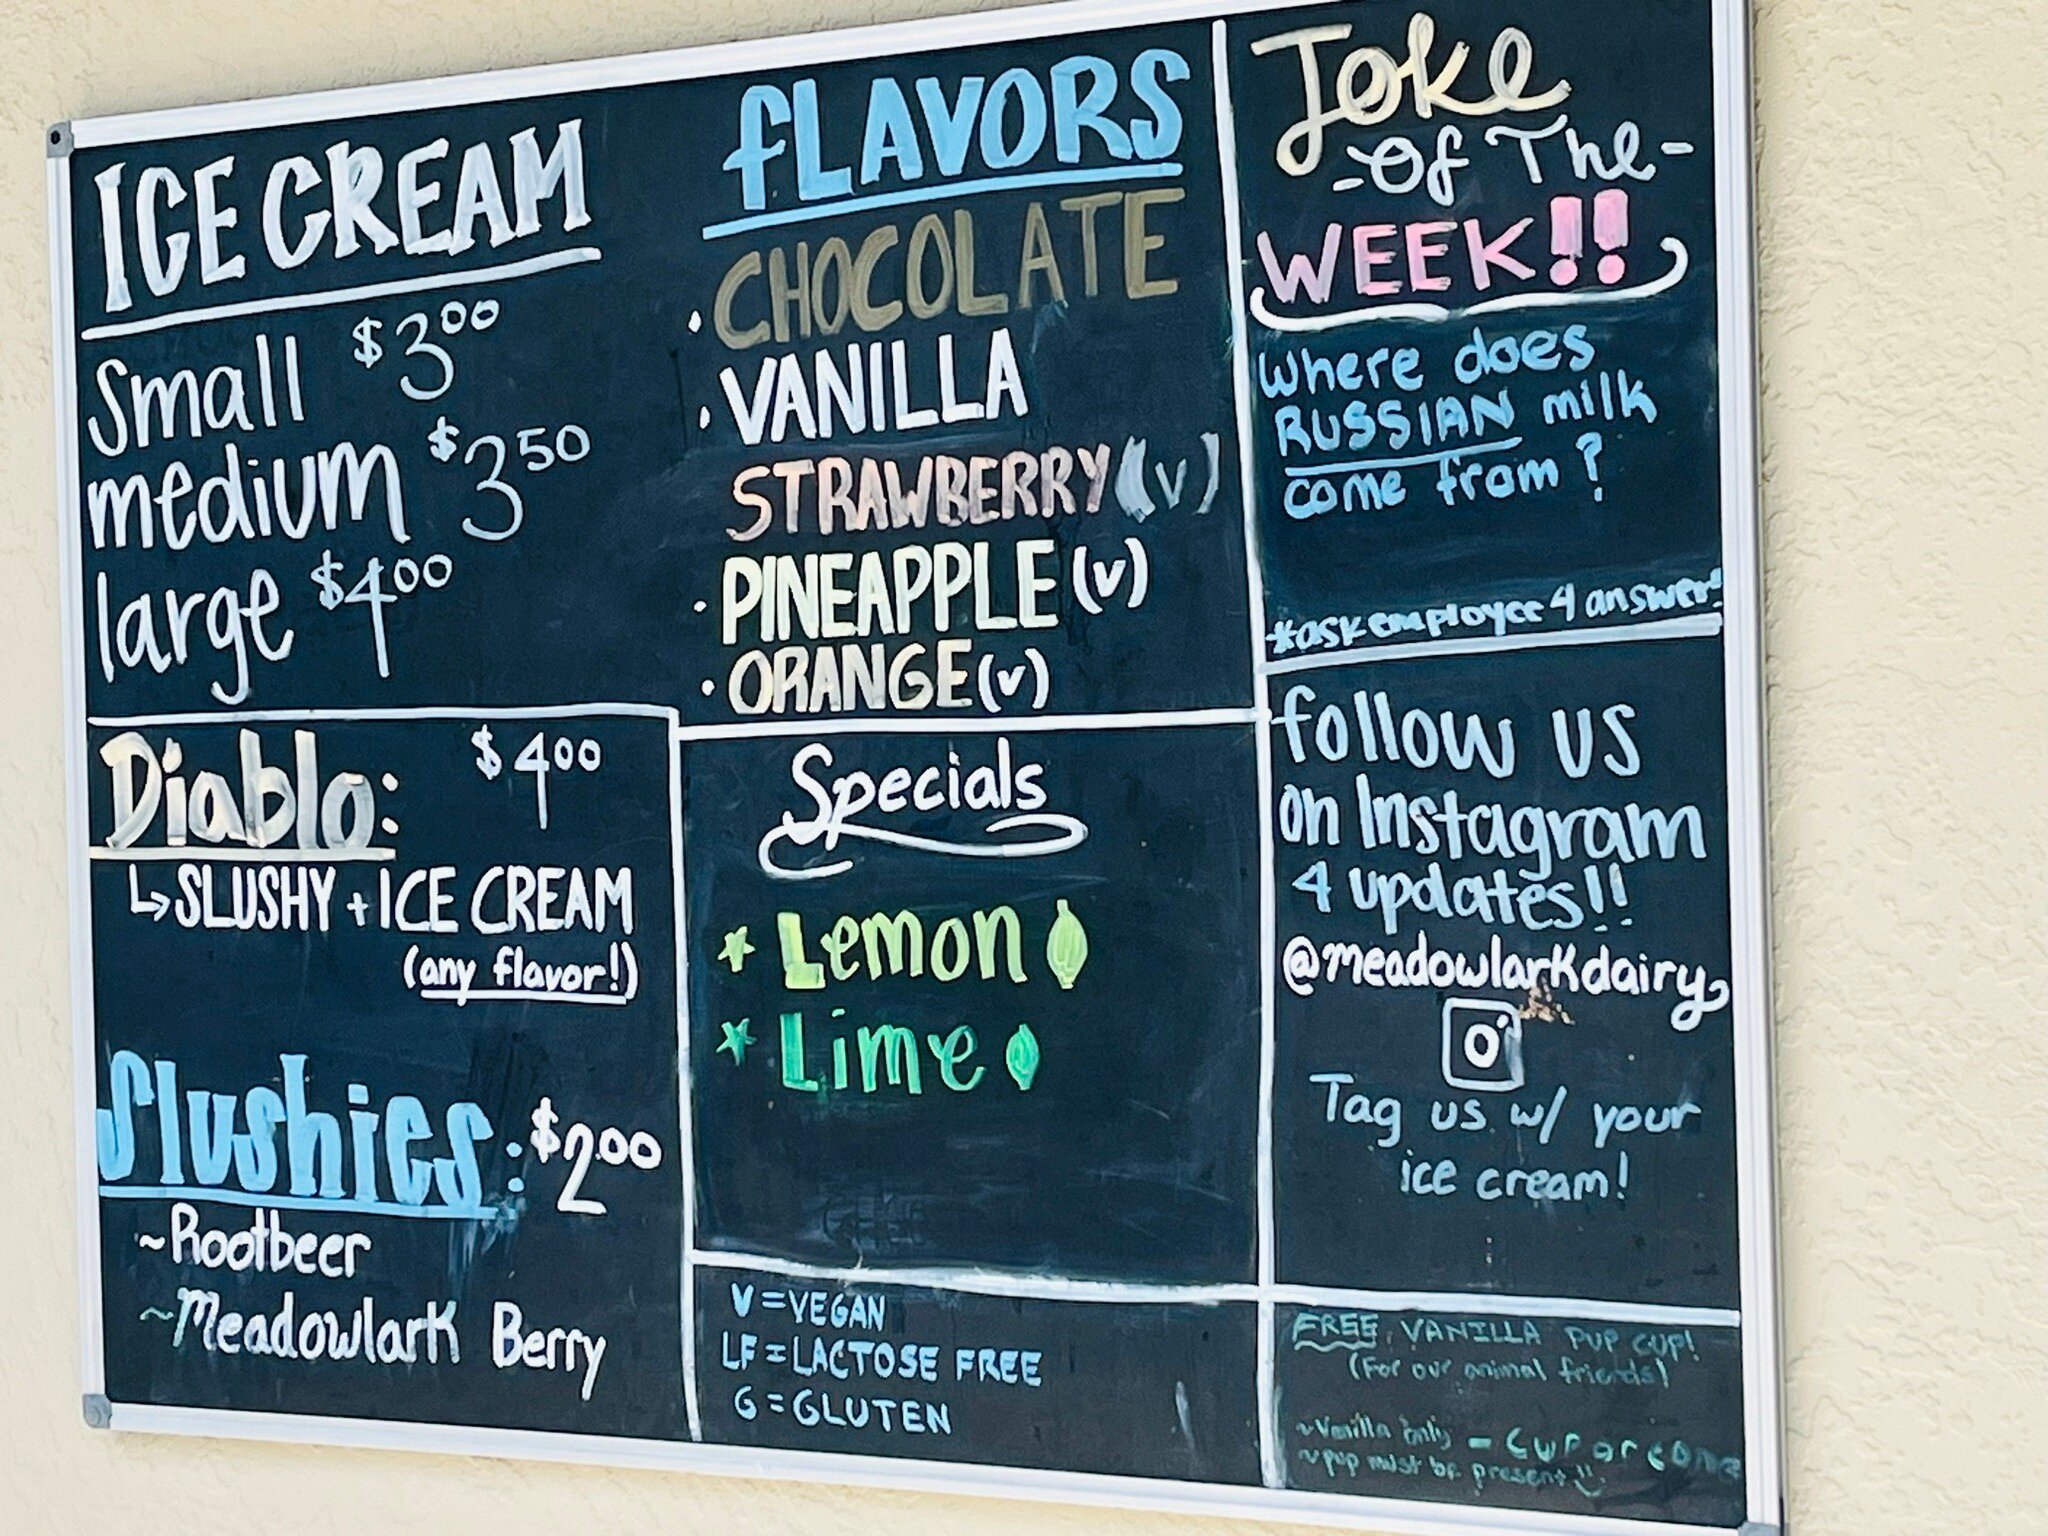 ICE CREAM
Small $3.00
medium $3.50
large $4.00
FLAVORS
· CHOCOLATE
· VANILLA
STRAWBERRY (V)
· PINEAPPLE (V)
· ORANGE (V)
Joke
-Of The-
WEEK!!
Where does
RUSSIAN milk
come from?
*ask employee 4 answer!
Diablo: $4.00
↳ SLUSHY + ICE CREAM
(any flavor!)
Slushies: $2.00
~Rootbeer
~Meadowlark Berry
Specials
* Lemon
* Lime
V = VEGAN
LF = LACTOSE FREE
G = GLUTEN
follow us
on Instagram
4 updates!!
@meadowlarkdairy
Tag us w/ your
ice cream!
FREE VANILLA PUP CUP!
(For our animal friends)
~Vanilla only - cup or cone
~pup must be present